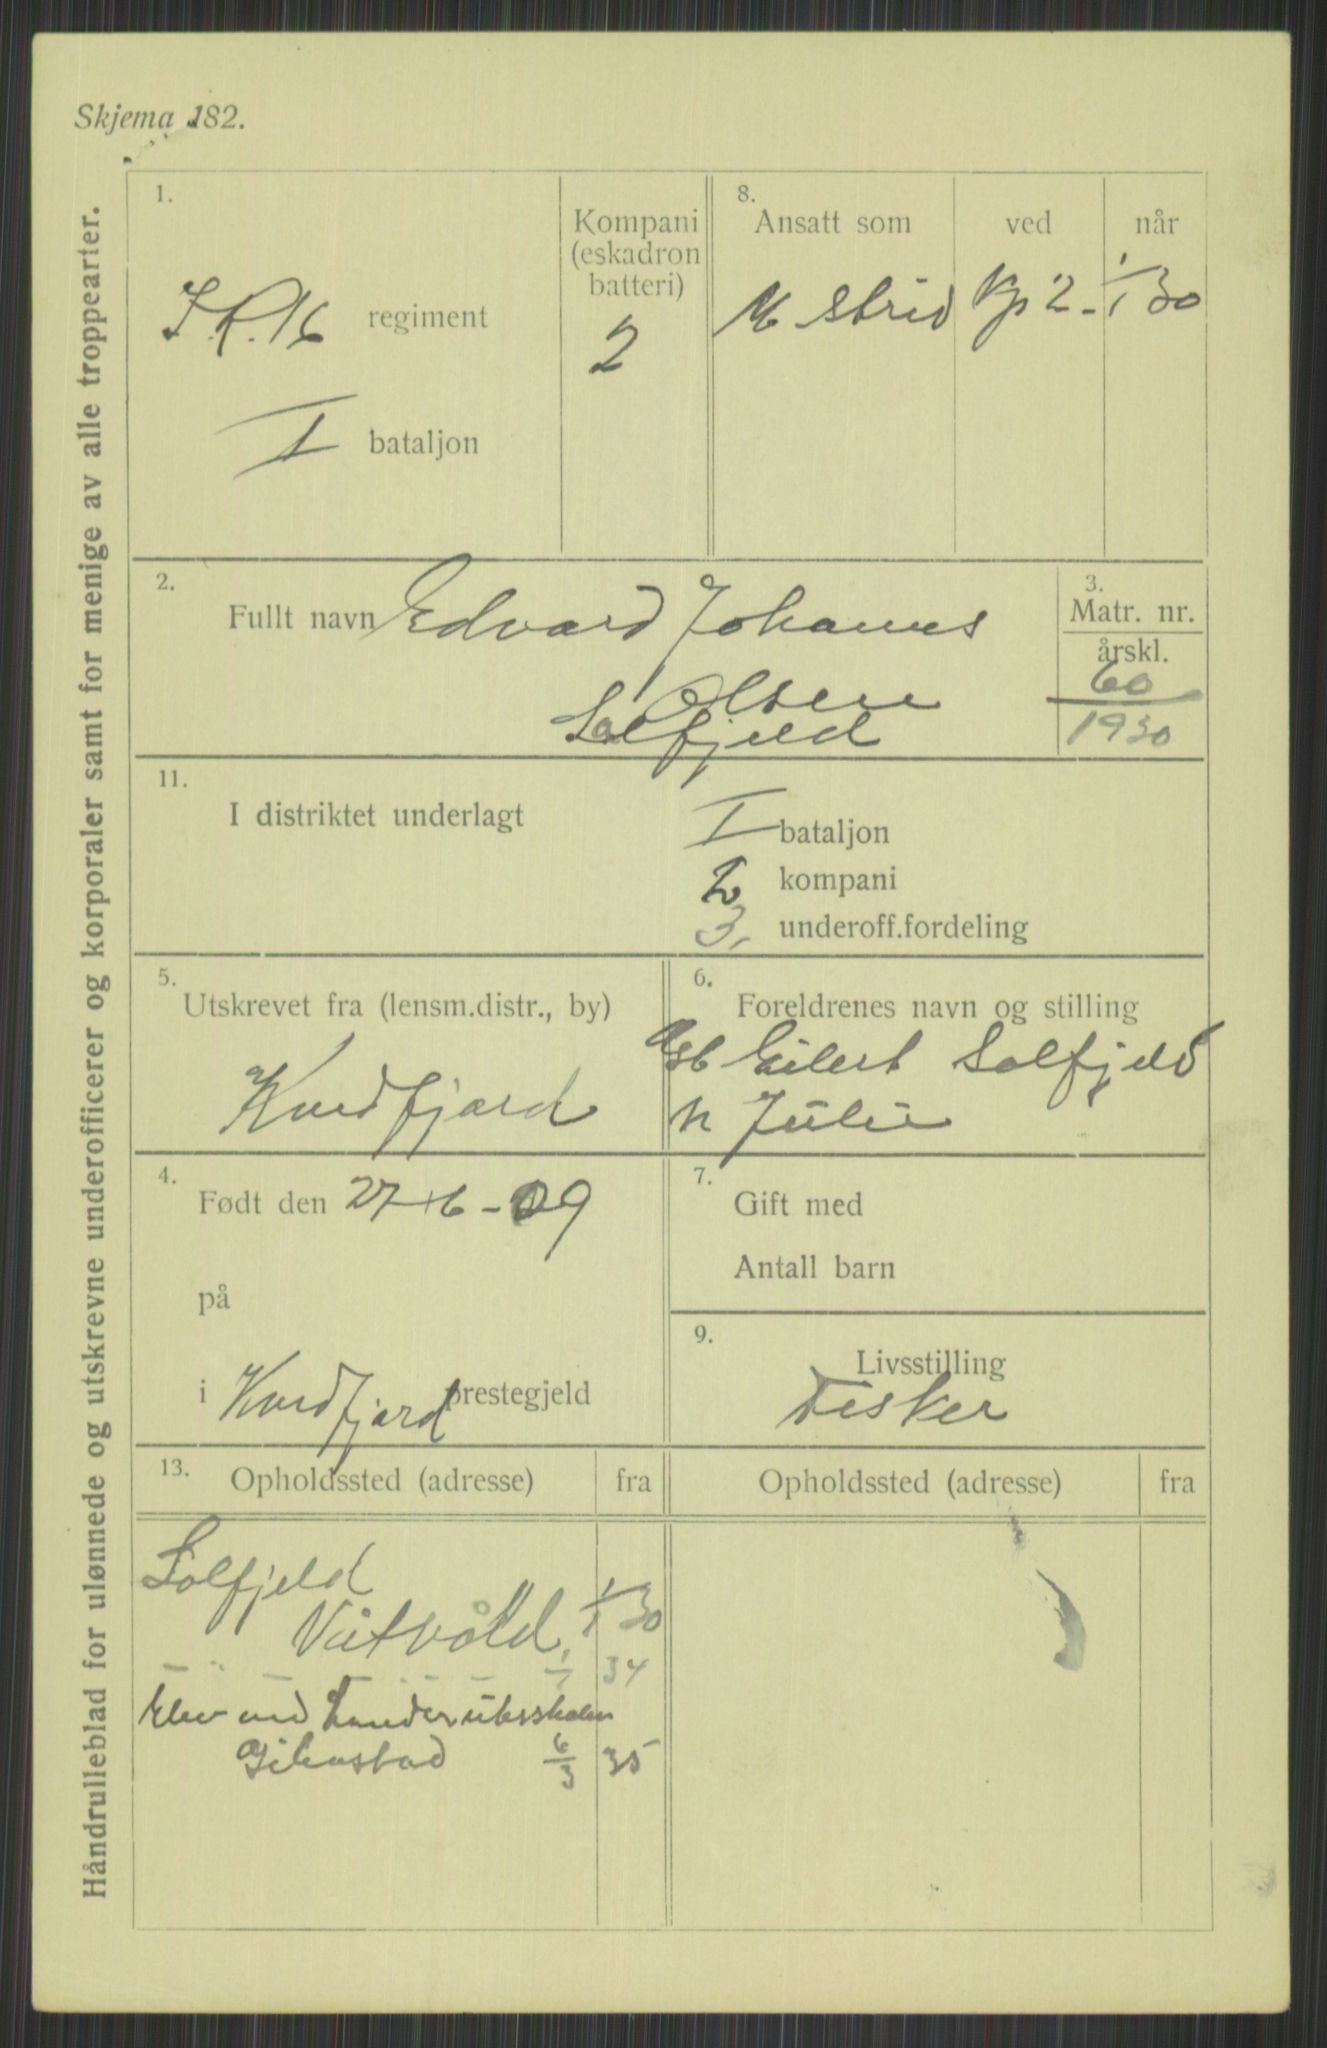 Skjema 182.
Håndrulleblad for ulønnede og utskrevne underofficerer og korporaler samt for menige av alle troppearter.
1.
I.R. 16 regiment
I bataljon
Kompani
(eskadron
batteri)
2
8.
Ansatt som ved når
M strid Kp 2 - 1/1 30
2.
Fullt navn Edvard Johannes
Olsen
Solfjeld
3.
Matr. nr.
årskl.
60
1930
11.
I distriktet underlagt
I bataljon
2 kompani
3. underoff.fordeling
5.
Utskrevet fra (lensm.distr., by)
Kvedfjord
6.
Foreldrenes navn og stilling
Gbr Eilert Solfjeld
h Julie
4.
Født den 27-6-09
på
i Kvedfjord prestegjeld
7.
Gift med
Antall barn
9.
Livsstilling
Fisker
13.
Opholdssted (adresse) fra Opholdssted (adresse) fra
Solfjeld
Vikvold 1/1 30
— " — — " — 1/1 34
Elev ved Landbruksskolen
Gibostad 6/3 35